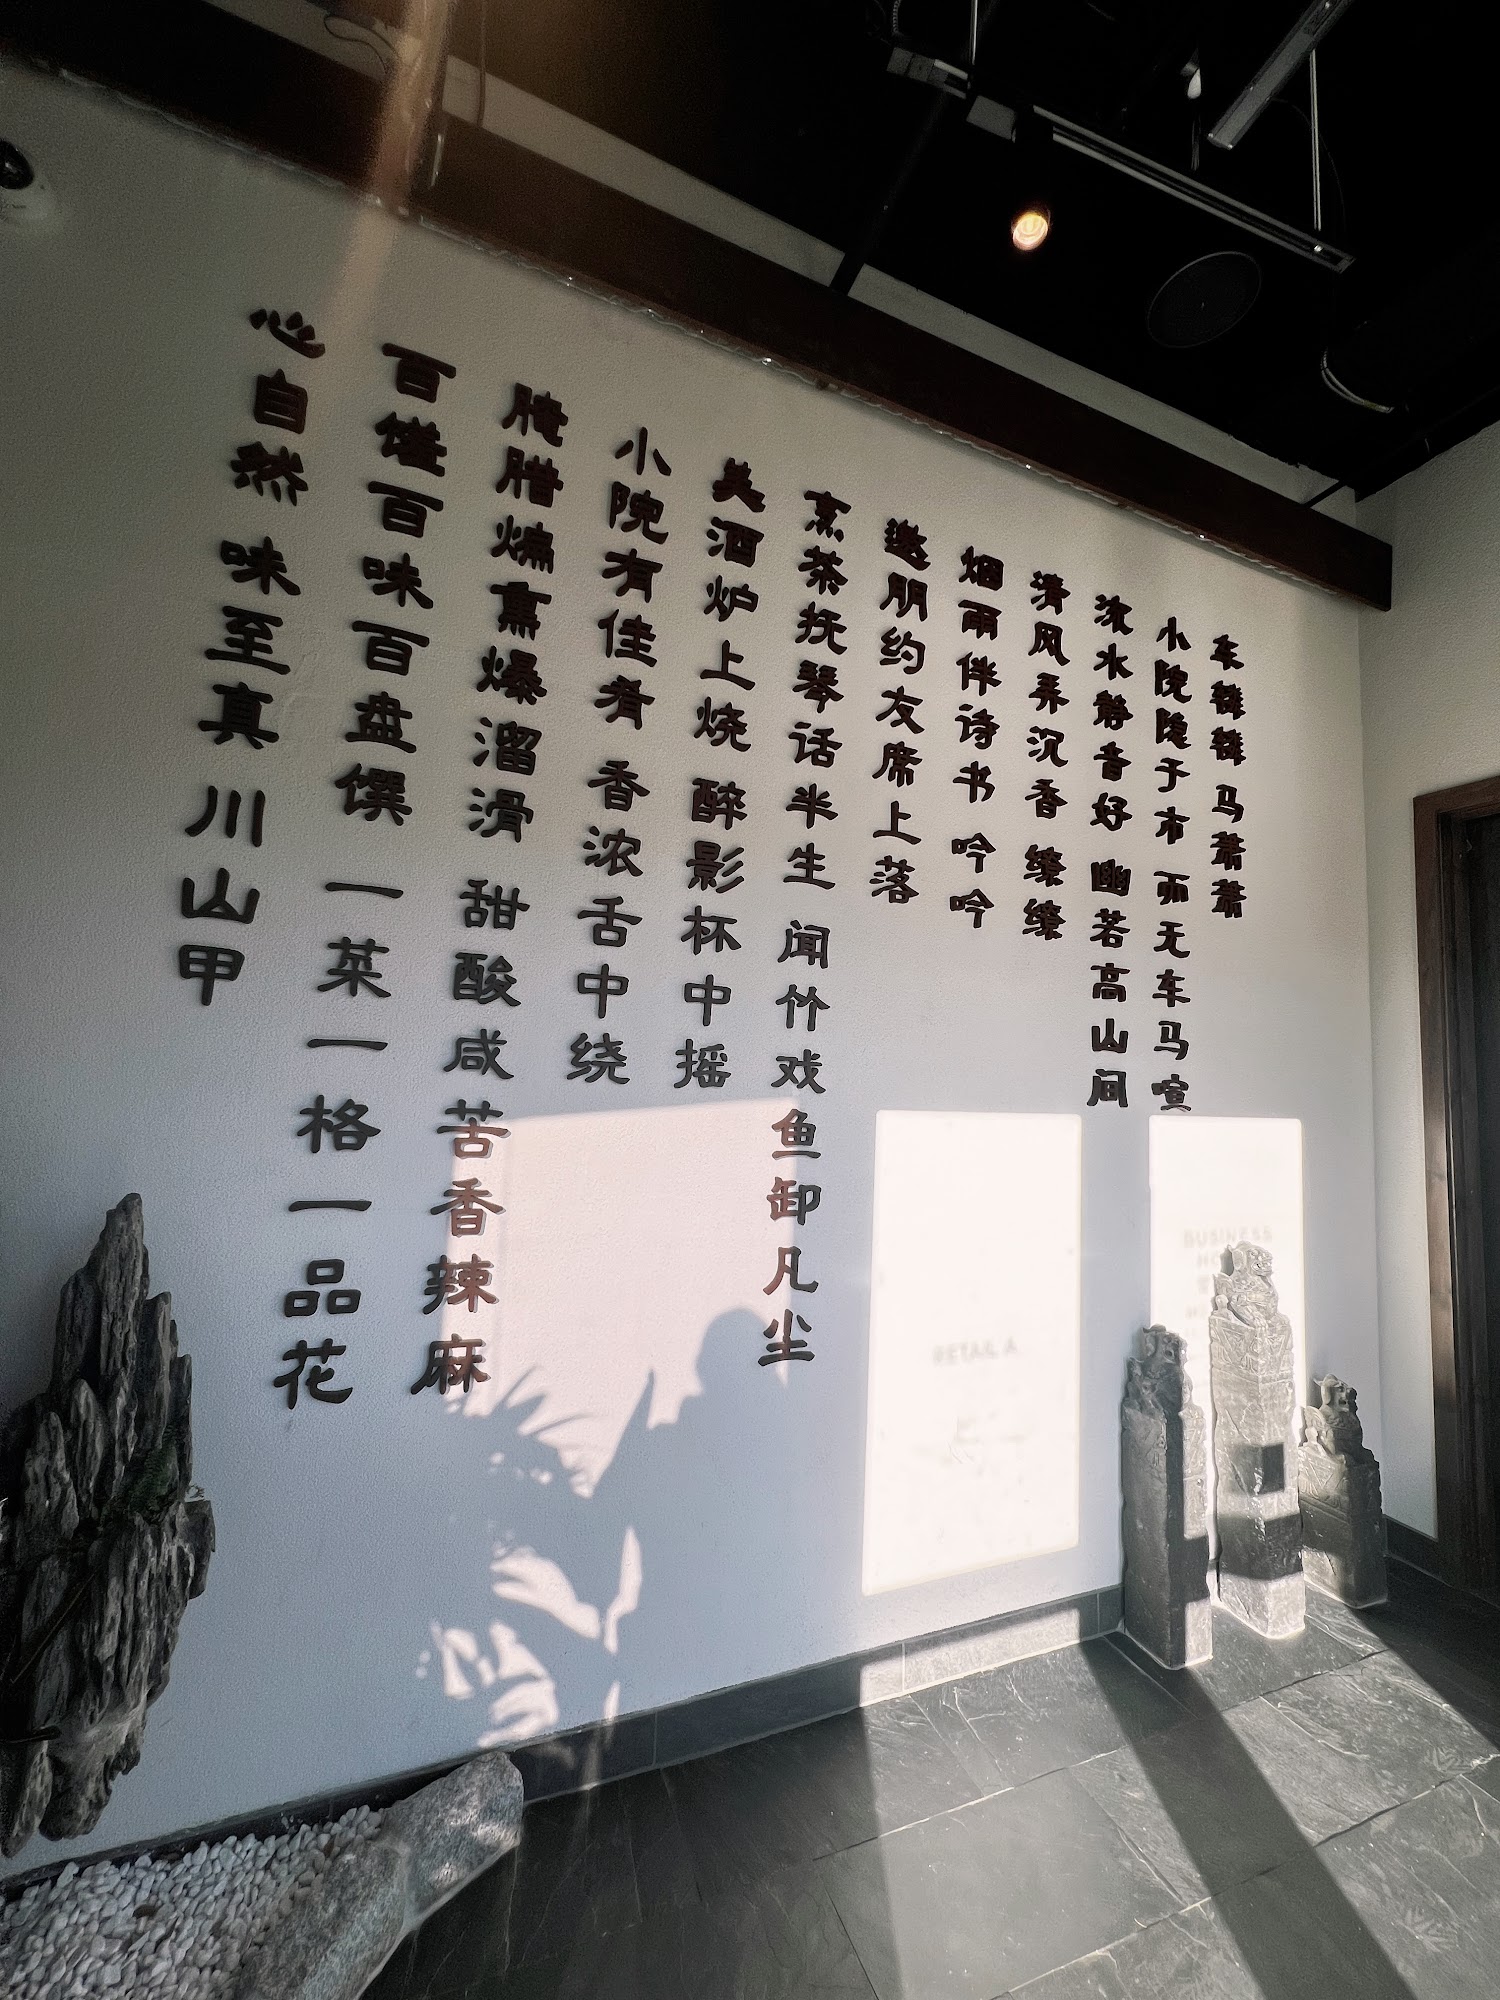 车辚辚 马萧萧
小院隐于市 而无车马喧
流水静音好 幽若高山间
清风弄沉香 缭缭
烟雨伴诗书 吟吟
邀朋约友席上落
烹茶抚琴话半生 闻竹戏鱼卸凡尘
美酒炉上烧 醉影杯中摇
小院有佳肴 香浓舌中绕
腌腊煸熏爆溜滑 甜酸咸苦香辣麻
百馐百味百盘馔 一菜一格一品花
心自然 味至真 川山甲
RETAIL A
BUSINESS